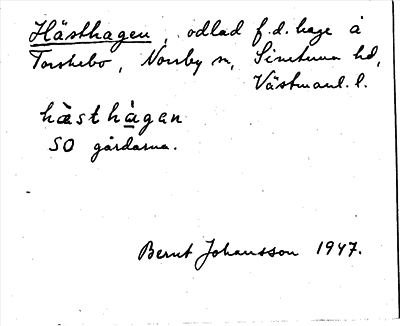 Hästhagen, odlad f.d. hage å
Torsbo, Norrby sn, Simtuna hd,
Västmanl. l.
hästhagen
SO gårdarna.
Bernt Johansson 1947.